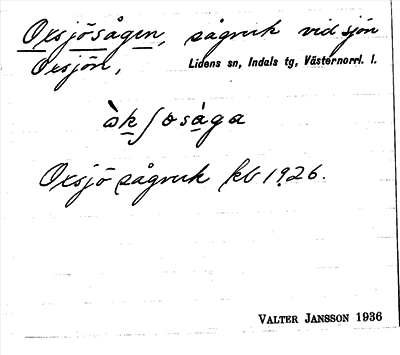 Oxsjösågen, sågverk vid sjön
Oxsjön,
Lidens sn, Indals tg, Västernorrl. l.
òkʃosåga
Oxsjö sågverk kb 1926.
VALTER JANSSON 1936